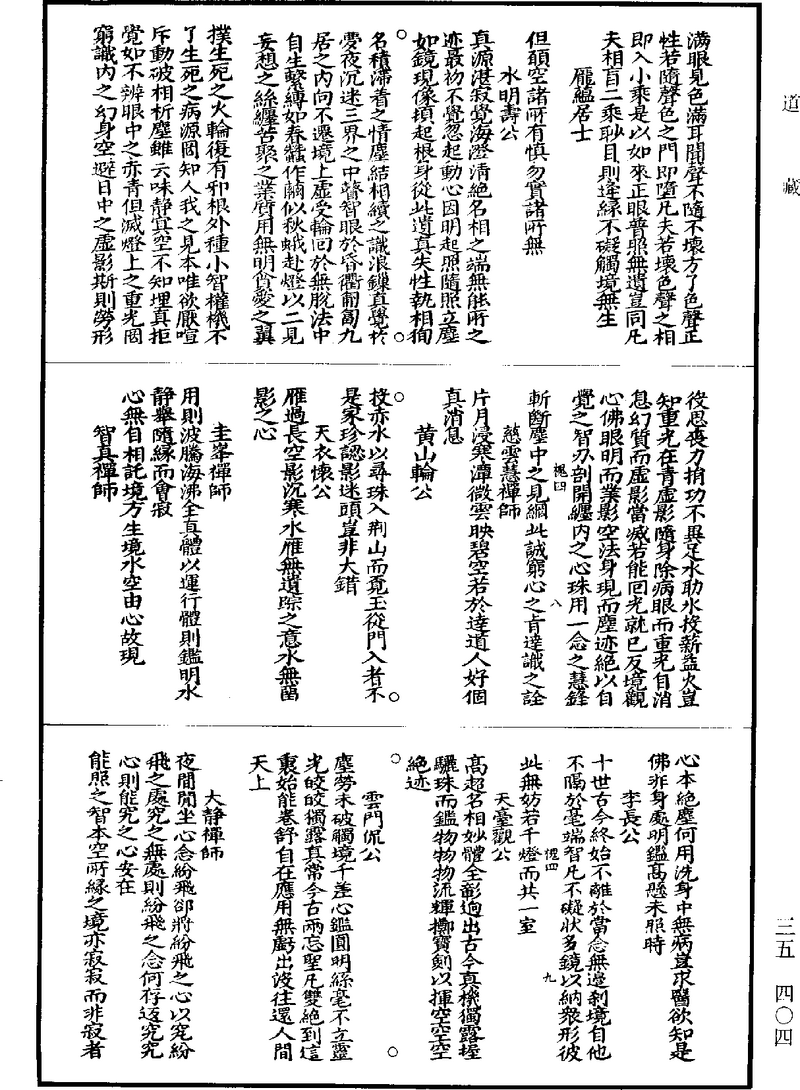 道藏
滿眼見色滿耳聞聲不隨不壞方了色聲正
性若隨聲色之門即墮凡夫若壞色聲之相
即入小乘是以如來正眼普照無遺豈同凡
夫相盲二乘眇目則逢緣不礙觸境無生
龐蘊居士
但願空諸所有慎勿實諸所無
永明壽公
真源湛寂覺海澄清絕名相之端無能所之
迹最初不覺忽起動心因明起照隨照立塵
如鏡現像頓起根身從此遺真失性執相徇
名積滯着之情塵結相續之識浪鏁真覺於
夢夜沉迷三界之中瞽智眼於昏衢匍匐九
居之內向不遷境上虛受輪回於無脫法中
自生繫縛如春蠶作繭似秋蛾赴燈以二見
妄想之絲纏苦聚之業質用無明貪愛之翼
撲生死之火輪復有邪根外種小智權機不
了生死之病源罔知人我之見本唯欲厭喧
斥動破相析塵雖云味靜真空不知埋真拒
覺如不辨眼中之赤眚但滅燈上之重光罔
窮識內之幻身空避日中之虛影斯則勞形
役思喪力捐功不異足水助氷投薪益火豈
知重光在眚虛影隨身除病眼而重光自消
息幻質而虛影當滅若能回光就已反境觀
心佛眼明而業影空法身現而塵迹絕以自
覺之智刃剖開纏內之心珠用一念之慧鋒
槐四
八
斬斷塵中之見網此誠窮心之肯達識之詮
慈雲慧禪師
片月浸寒潭微雲映碧空若於達道人好個
真消息
黃山輪公
投赤水以尋珠入荆山而覓玉從門入者不
是家珍認影迷頭豈非大錯
天衣懷公
雁過長空影沉寒水雁無遺踪之意水無留
影之心
圭峯禪師
用則波騰海沸全真體以運行體則鑑明水
静舉隨緣而會寂
智真禪師
心無自相託境方生境水空由心故現
心本絕塵何用洗身中無病豈求醫欲知是
佛非身處明鑑高懸未照時
李長公
十世古今終始不離於當念無邊刹境自他
不隔於毫端智凡不礙狀多鏡以納衆形彼
槐四
九
此無妨若千燈而共一室
天臺觀公
高超名相妙體全彰逈出古今真機獨露握
驪珠而鑑物物物流輝擲寶劍以揮空空空
絕迹
雲門侃公
塵勞未破觸境千差心鑑圓明絲毫不立靈
光皎皎獨露真常今古兩忘聖凡雙絕到這
裏始能卷舒自在應用無虧出沒往還人間
天上
大静禪師
夜間閒坐心念紛飛卻將紛飛之心以究紛
飛之處究之無處則紛飛之念何存返究究
心則能究之心安在
能照之智本空所緣之境亦寂寂而非寂者
三五
四〇四